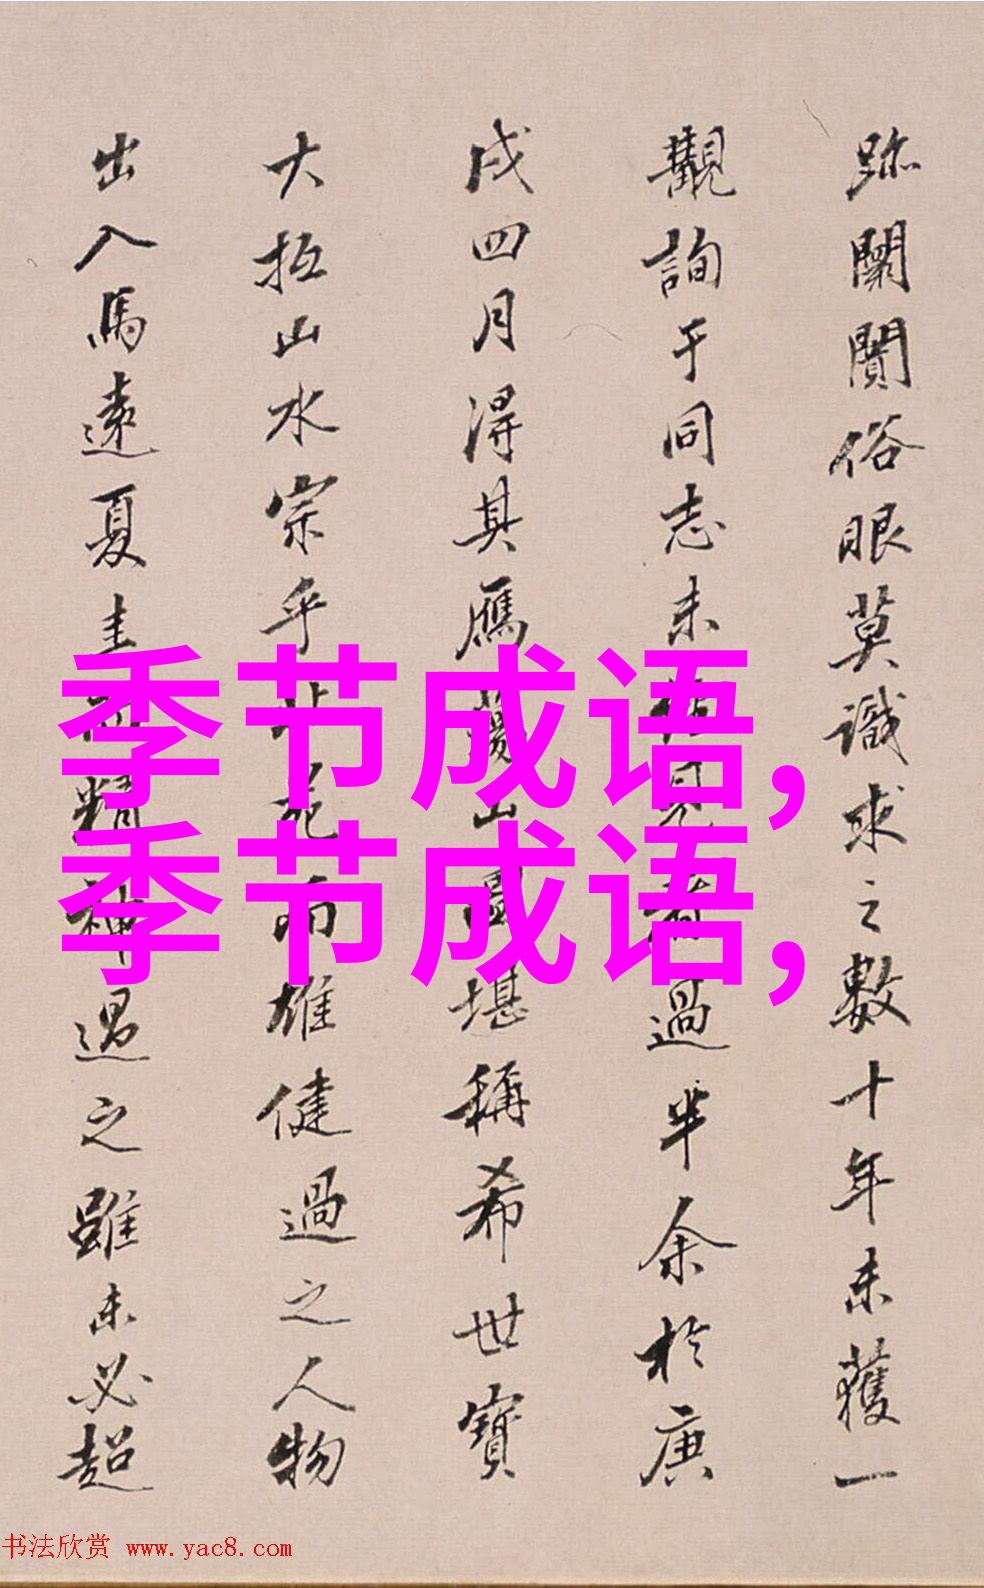 跡闤闠俗眼莫識求之數十年未獲一
觀詢于同志未見者過半余於庚
戌四月得其鴈蕩山圖堪稱希世寶
大抵山水宗乎北苑而雄健過之人物
出入馬遠夏圭而精神過之雖未必超
季节成语,
季节成语,
书法欣赏 www.yac8.com